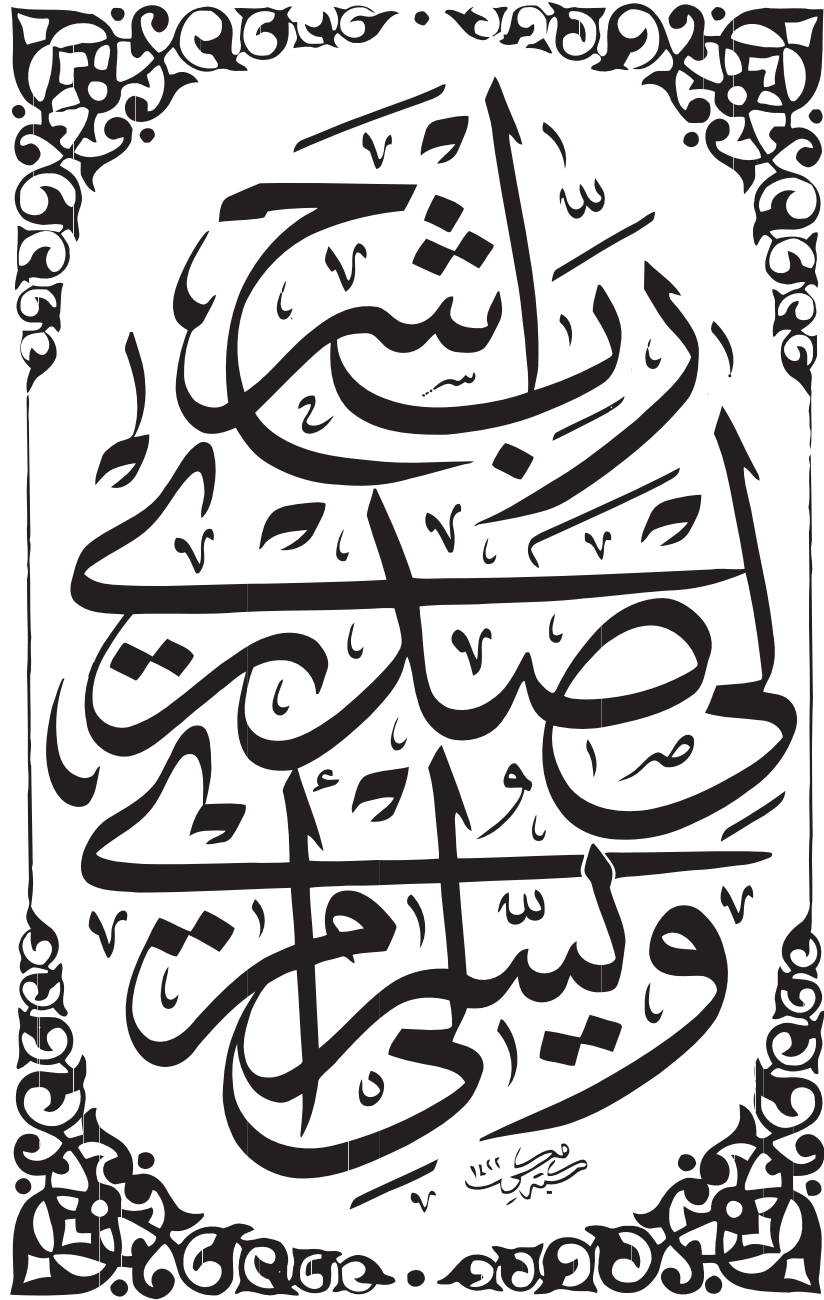 رَبِّ اشْرَحْ
لِي صَدْرِي
وَيَسِّرْ لِي أَمْرِي
١٤٢٢